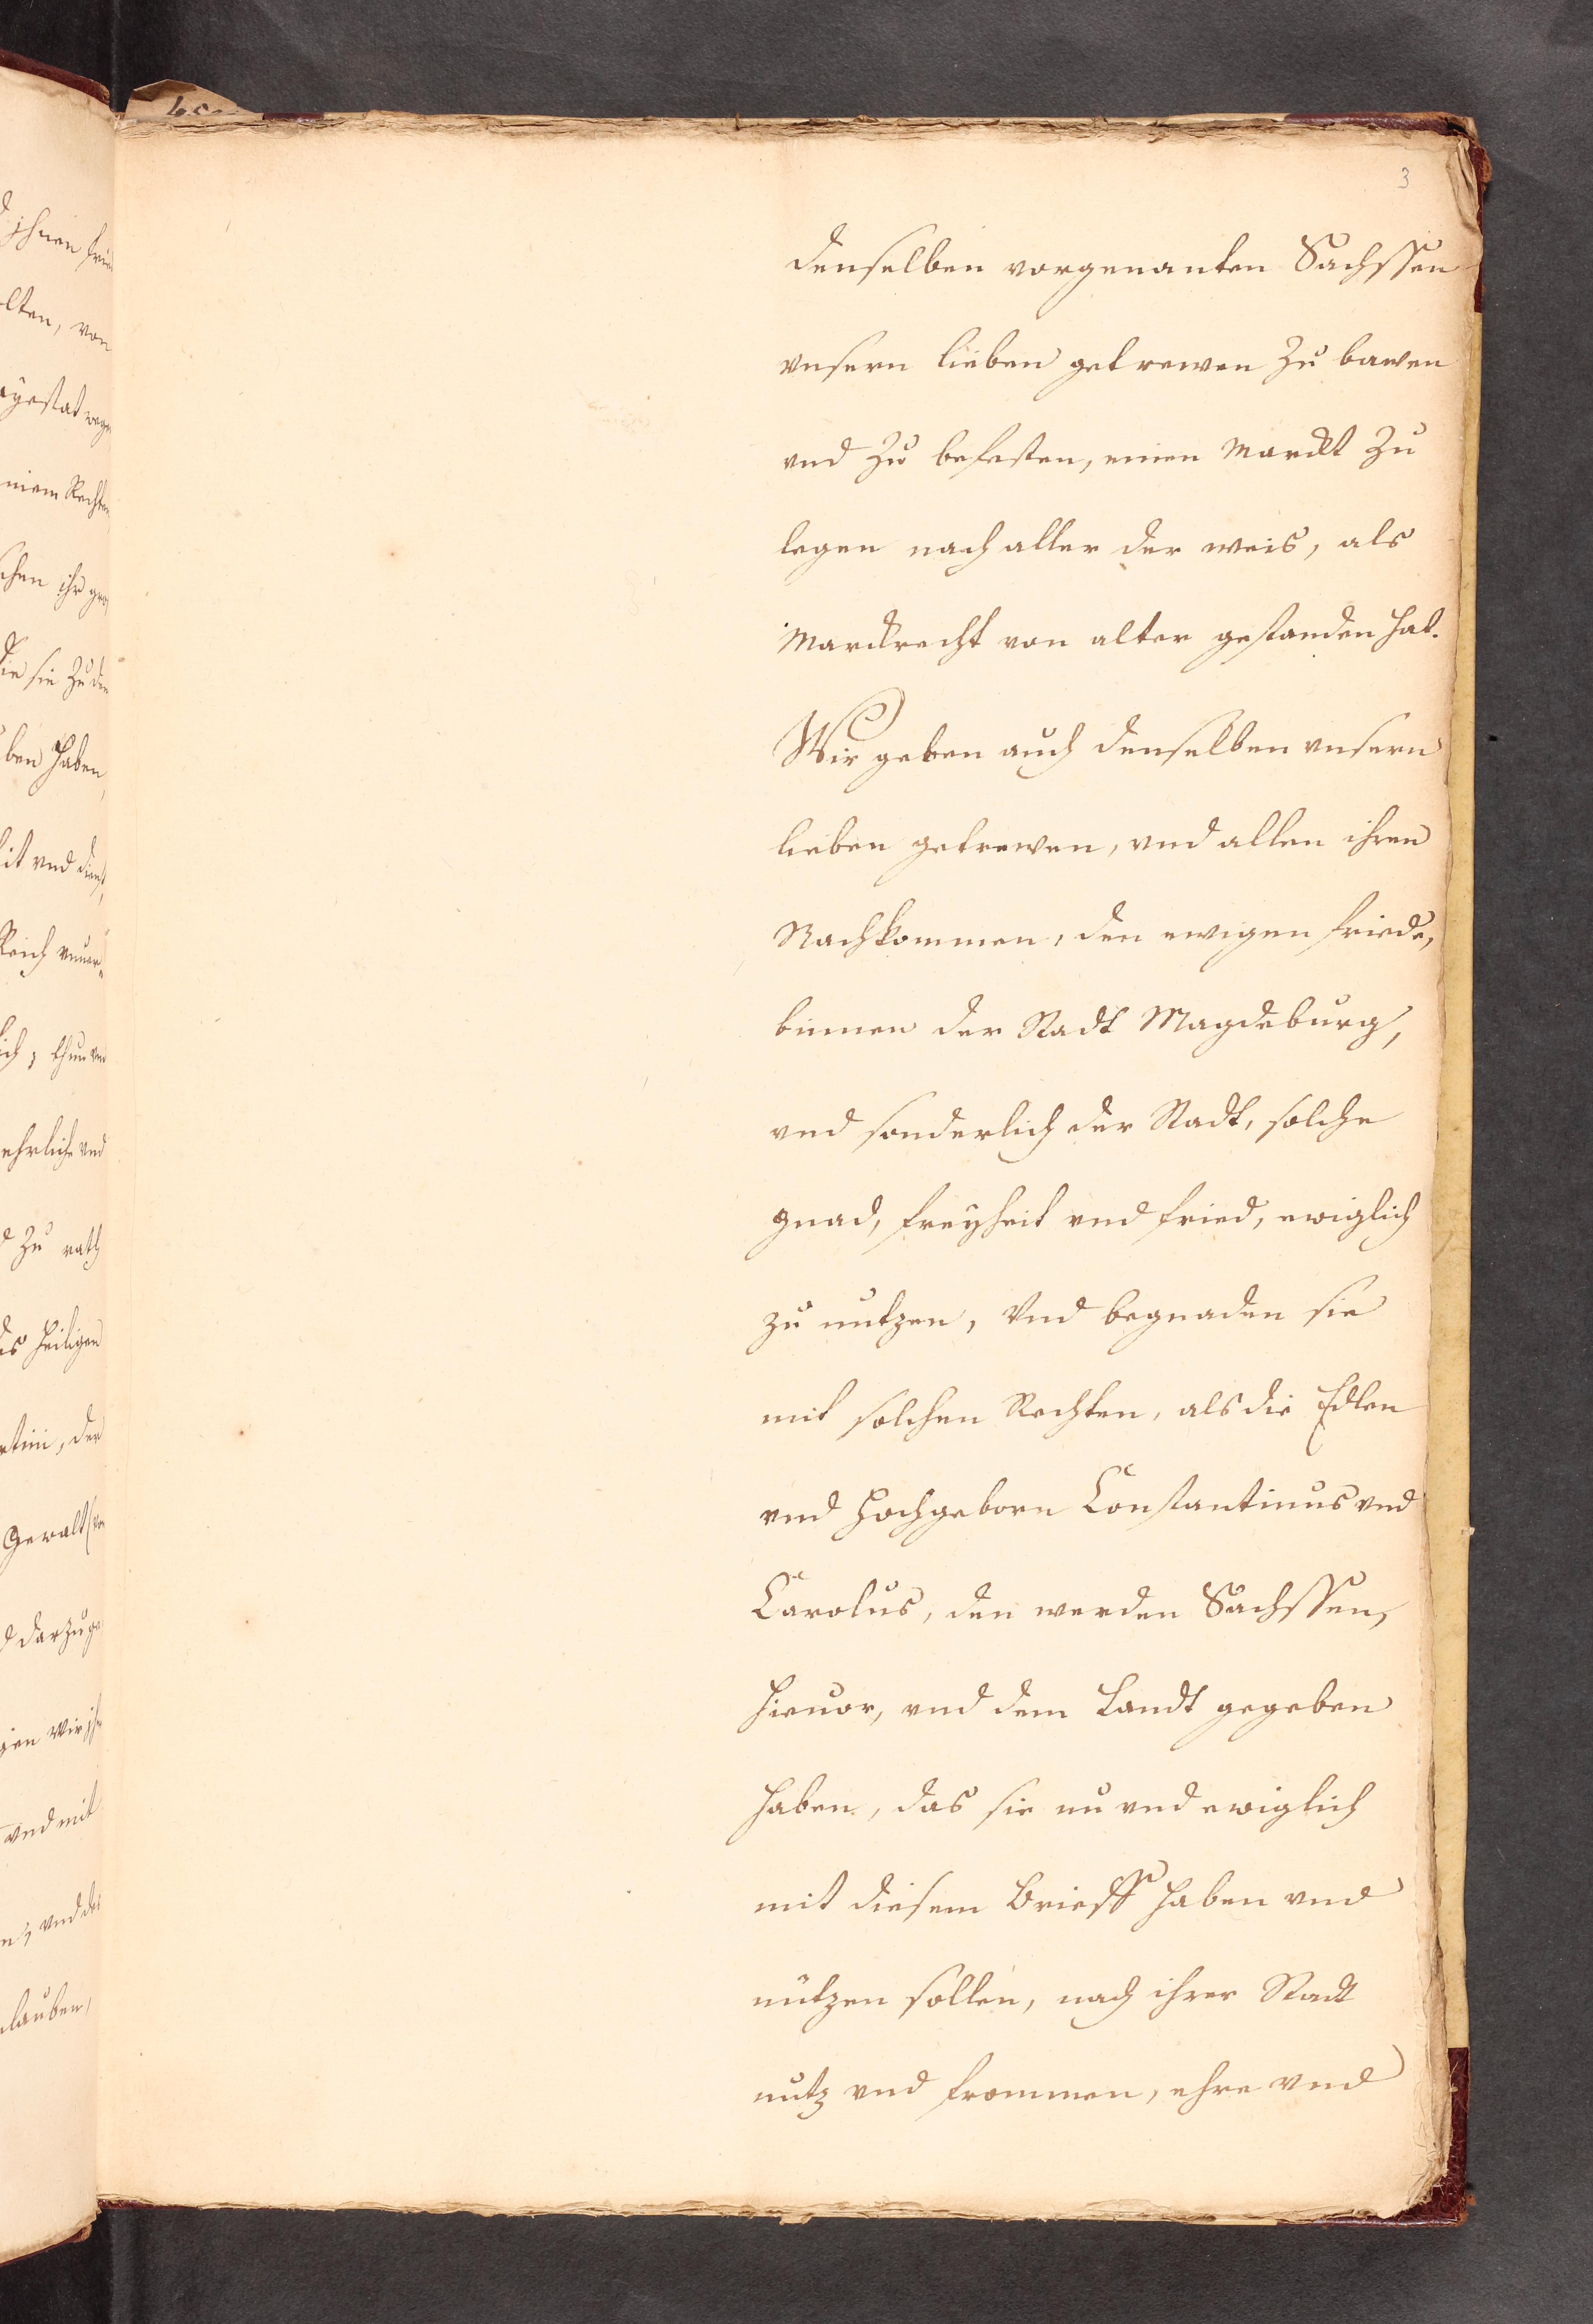 3
denselben vorgenanten Sachssen
vnsern lieben getrewen Zu bawen
vnd Zu befesten, einen Marckt Zu
legen nach aller der weis, als
Marckrecht von alter gestanden hat.
Wir geben auch denselben vnsern
lieben getrewen, vnd allen ihren
Nachkommen, den ewigen friede,
binnen der Stadt Magdeburg,
vnd sonderlich der Stadt, solche
gnad, freyheit vnd fried, ewiglich
zu nutzen, Vnd begnaden sie
mit solchen Rechten, als die Edlen
vnd Hochgeborn Constantinus vnd
Carolus, den werden Sachssen,
hieuor, vnd dem Landt gegeben
haben, das sie nu vnd ewiglich
mit diesem Brieff haben vnd
nützen sollen, nach ihrer Stadt
nutz vnd frommen, ehre vnd